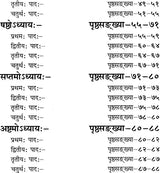 तृतीयः पादः— पृष्ठसङ्ख्या–४९–५१
चतुर्थः पादः— पृष्ठसङ्ख्या–५१–५५
षष्ठोऽध्यायः— पृष्ठसङ्ख्या–५५–७१
प्रथमः पादः— पृष्ठसङ्ख्या–५५–५९
द्वितीयः पादः— पृष्ठसङ्ख्या–६०–६४
तृतीयः पादः— पृष्ठसङ्ख्या–६४–६७
चतुर्थः पादः— पृष्ठसङ्ख्या–६७–७१
सप्तमोऽध्यायः— पृष्ठसङ्ख्या–७१–८०
प्रथमः पादः— पृष्ठसङ्ख्या–७१–७३
द्वितीयः पादः— पृष्ठसङ्ख्या–७३–७५
तृतीयः पादः— पृष्ठसङ्ख्या–७५–७८
चतुर्थः पादः— पृष्ठसङ्ख्या–७८–८०
अष्टमोऽध्यायः— पृष्ठसङ्ख्या–८०–८८
प्रथमः पादः— पृष्ठसङ्ख्या–८०–८२
द्वितीयः पादः— पृष्ठसङ्ख्या–८२–८४
तृतीयः पादः— पृष्ठसङ्ख्या–८४–८६
चतुर्थः पादः— पृष्ठसङ्ख्या–८६–८८